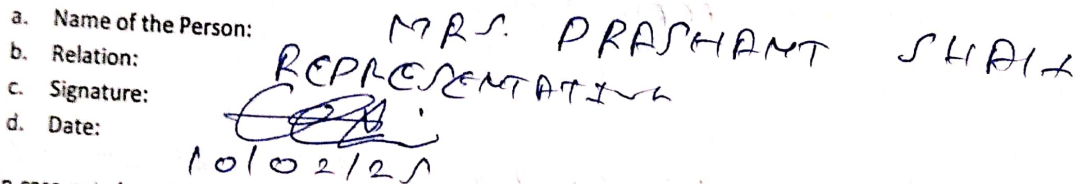 a. Name of the Person: MRS. PRASHANT SHAH
b. Relation: REPRESENTATIVE
c. Signature:
d. Date: 10/02/25